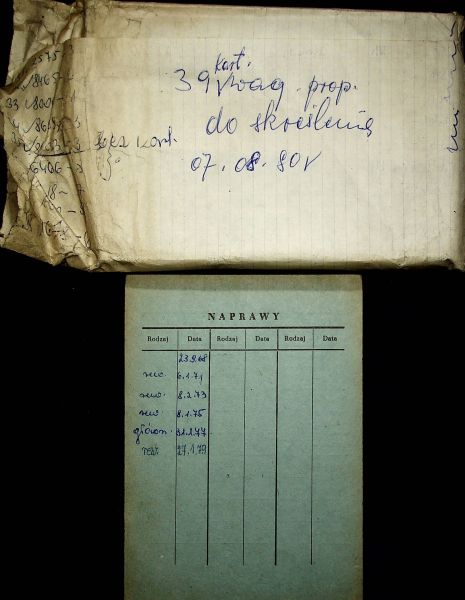 2575
kart.
39 wag. prop.
do skreślenia
07.08.80r
bez kart.
6406 - 3
NAPRAWY
Rodzaj Data Rodzaj Data Rodzaj Data
23.9.68
rew. 6.1.71
rew. 8.2.73
rew. 8.1.75
główn. 31.1.77
rew. 27.1.79